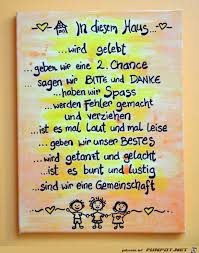 In diesem Haus...
...wird gelebt
...geben wir eine 2. Chance
...sagen wir BITTE und DANKE
...haben wir Spass
...werden Fehler gemacht
und verziehen
...ist es mal laut und mal leise
...geben wir unser BESTES
...wird getanzt und gelacht
...ist es bunt und lustig
...sind wir eine Gemeinschaft
FUNPOT.NET